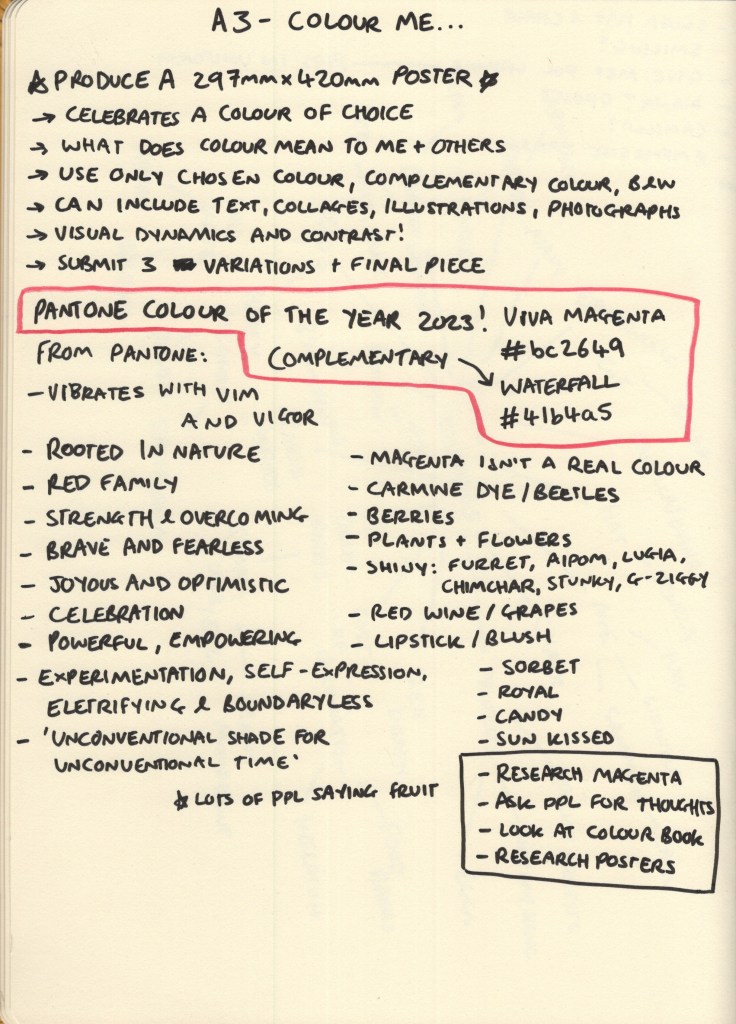 A3 - COLOUR ME...
☆ PRODUCE A 297mm x 420mm POSTER ☆
→ CELEBRATES A COLOUR OF CHOICE
→ WHAT DOES COLOUR MEAN TO ME + OTHERS
→ USE ONLY CHOSEN COLOUR, COMPLEMENTARY COLOUR, B&W
→ CAN INCLUDE TEXT, COLLAGES, ILLUSTRATIONS, PHOTOGRAPHS
→ VISUAL DYNAMICS AND CONTRAST!
→ SUBMIT 3 VARIATIONS + FINAL PIECE
PANTONE COLOUR OF THE YEAR 2023! VIVA MAGENTA
#bc2649
COMPLEMENTARY → WATERFALL
#41b4a5
FROM PANTONE:
- VIBRATES WITH VIM
AND VIGOR
- ROOTED IN NATURE
- RED FAMILY
- STRENGTH & OVERCOMING
- BRAVE AND FEARLESS
- JOYOUS AND OPTIMISTIC
- CELEBRATION
- POWERFUL, EMPOWERING
- EXPERIMENTATION, SELF-EXPRESSION,
ELETRIFYING & BOUNDARYLESS
- 'UNCONVENTIONAL SHADE FOR
UNCONVENTIONAL TIME'
- MAGENTA ISN'T A REAL COLOUR
- CARMINE DYE / BEETLES
- BERRIES
- PLANTS + FLOWERS
- SHINY: FURRET, AIPOM, LUGIA,
CHIMCHAR, STUNKY, G-ZIGGY
- RED WINE / GRAPES
- LIPSTICK / BLUSH
- SORBET
- ROYAL
- CANDY
- SUN KISSED
☆ LOTS OF PPL SAYING FRUIT
- RESEARCH MAGENTA
- ASK PPL FOR THOUGHTS
- LOOK AT COLOUR BOOK
- RESEARCH POSTERS